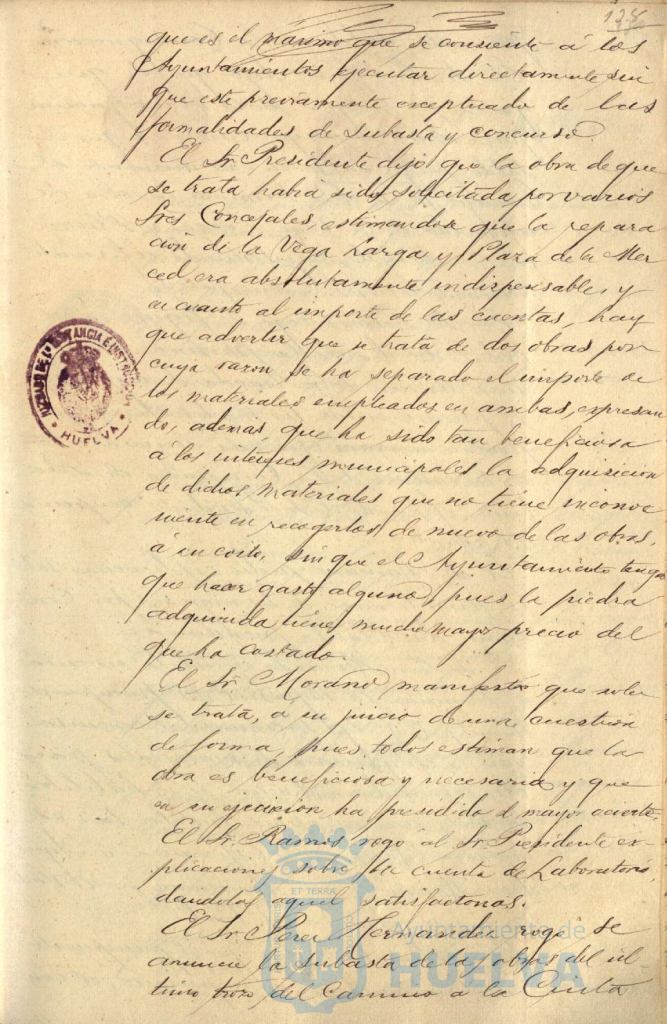 125
que es el maximo que se consiente á los
Ayuntamientos ejecutar directamente sin
que esté previamente exceptuado de las
formalidades de subasta y concurso.
El Sr. Presidente dijó que la obra de que
se trata habia sido solicitada por varios
Sres Concejales, estimandose que la repara
ción de la Vega Larga y Plaza de la Mer
ced, era absolutamente indispensable, y
en cuanto al importe de las cuentas, hay
que advertir que se trata de dos obras por
cuya razon se ha separado el importe de
los materiales empleados en ambas, expresan
do, además, que ha sido tan beneficiosa
á los intereses municipales la adquisicion
de dichos materiales que no tiene inconve
niente en recogerlos de nuevo de las obras,
á su costo, sin que el Ayuntamiento tenga
que hacer gasto alguno, pues la piedra
adquirida tiene mucho mayor precio del
que ha costado.
El Sr. Morano manifestó que solo
se trata, a su juicio de una cuestion
de forma, pues todos estiman que la
obra es beneficiosa y necesaria y que
en su ejecicion ha presidido el mayor acierto
El Sr. Ramos rogó al Sr. Presidente ex
plicaciones sobre la cuenta de Laboratorio,
dandolas aquel satisfactorias.
El Sr. Perez Hernandez rogó se
anuncie la subasta de las obras del úl
timo trozo del Camino a la Cinta
JUZGADO DE 1ª INSTANCIA É INSTRUCCION
HUELVA
ET TERRA
Ayuntamiento de
HUELVA